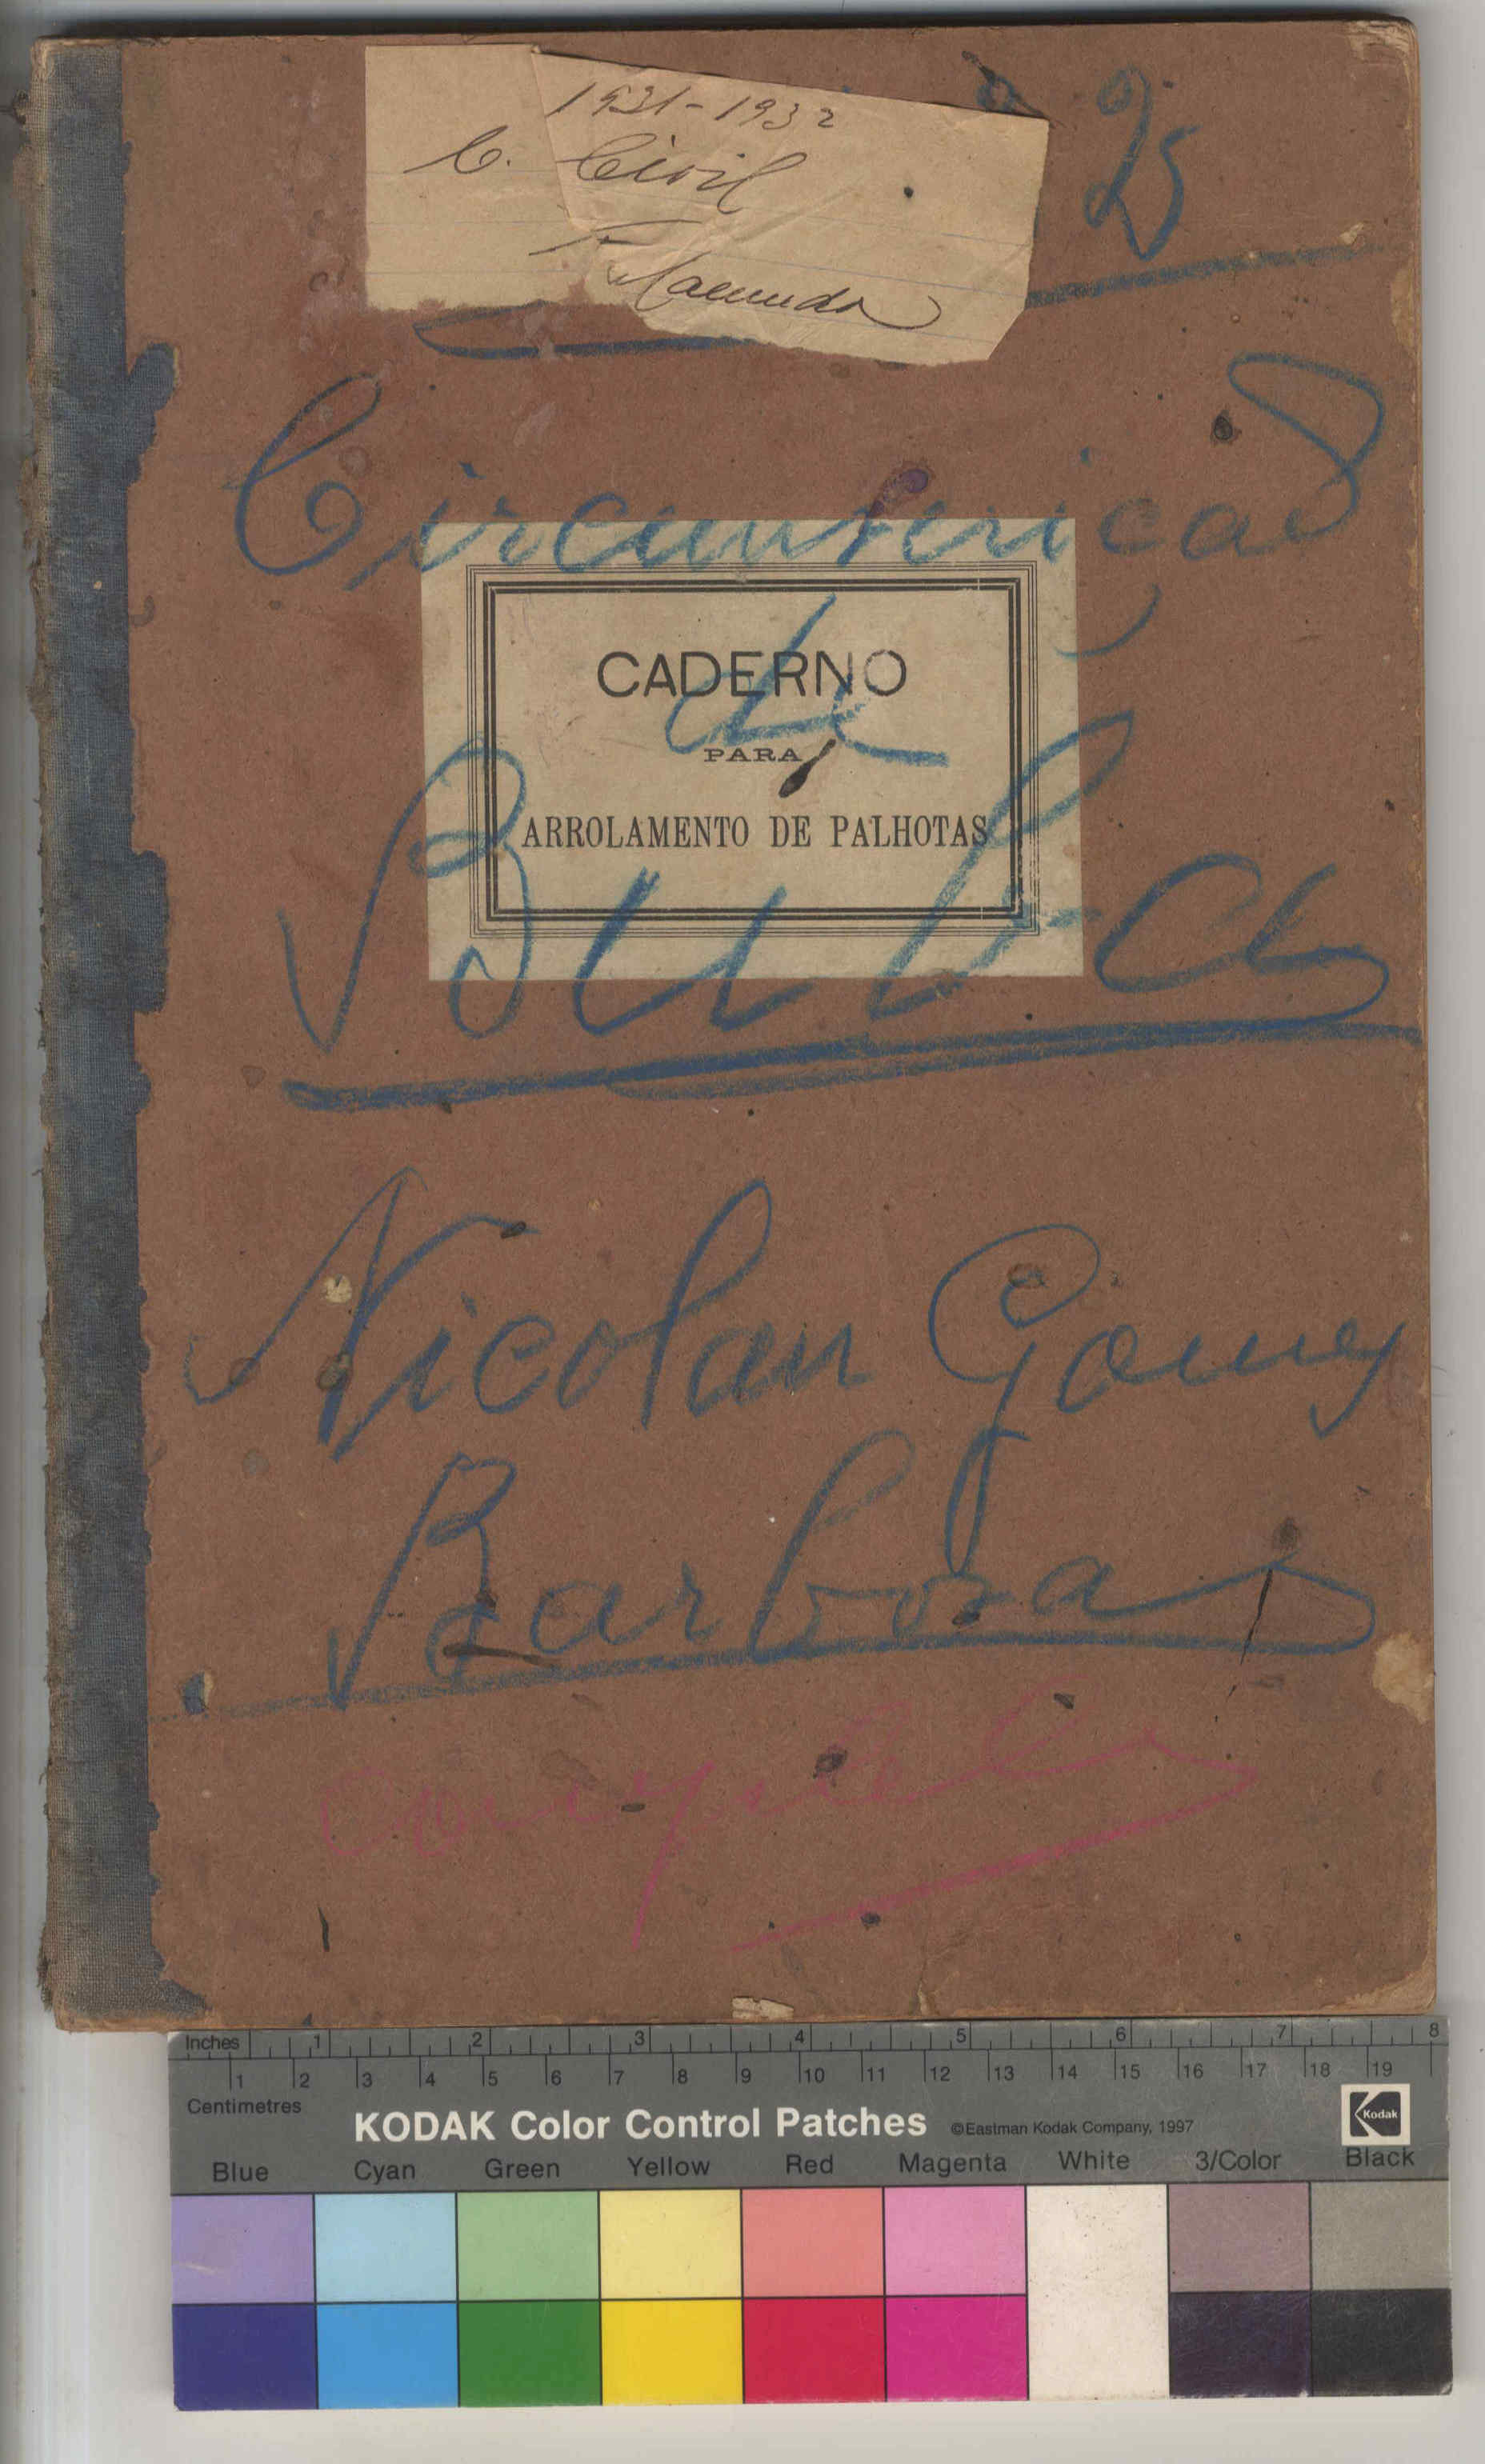 1931-1932
C. Civil
25
Circunscriçao
CADERNO
de
PARA
ARROLAMENTO DE PALHOTAS
Buba
Nicolau Gomes
Barbosa
Inches 1 2 3 4 5 6 7 8
1 2 3 4 5 6 7 8 9 10 11 12 13 14 15 16 17 18 19
Centimetres
KODAK Color Control Patches ©Eastman Kodak Company, 1997 Kodak
Blue Cyan Green Yellow Red Magenta White 3/Color Black